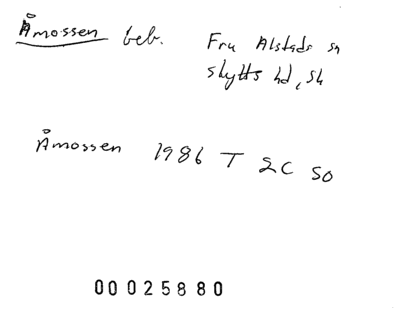 Åmossen beb. Fru Alstads sn
Skytts hd, Sk
Åmossen 1986 T 2C SO
00025880